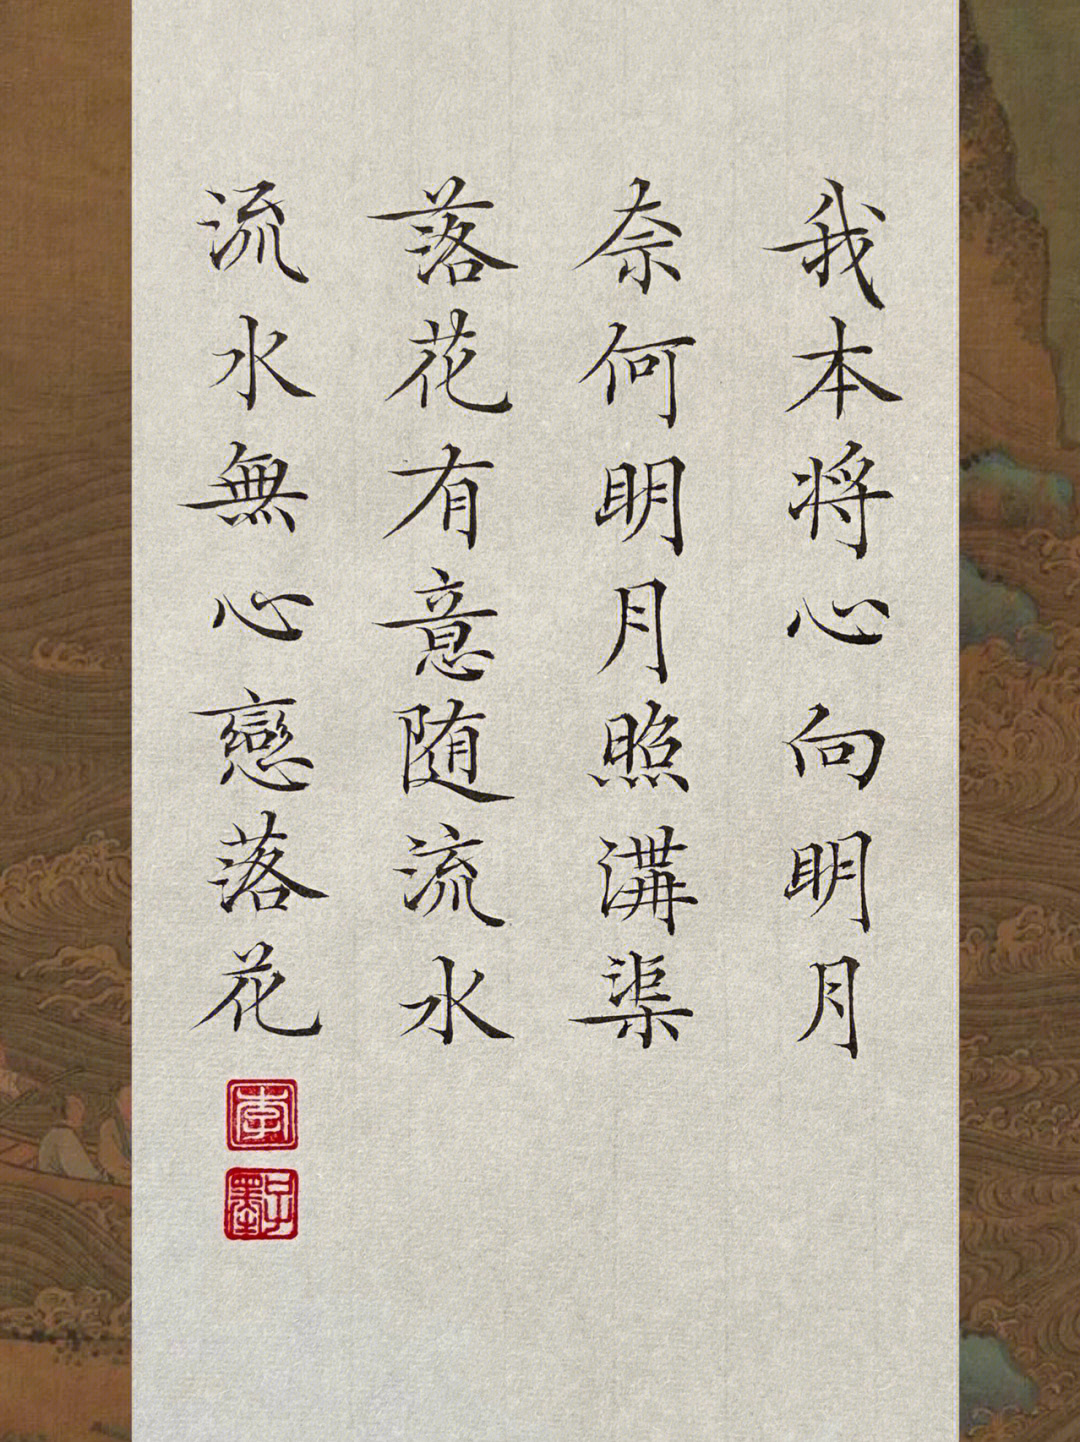 我本将心向明月
奈何明月照溝渠
落花有意随流水
流水無心戀落花
李
子墨